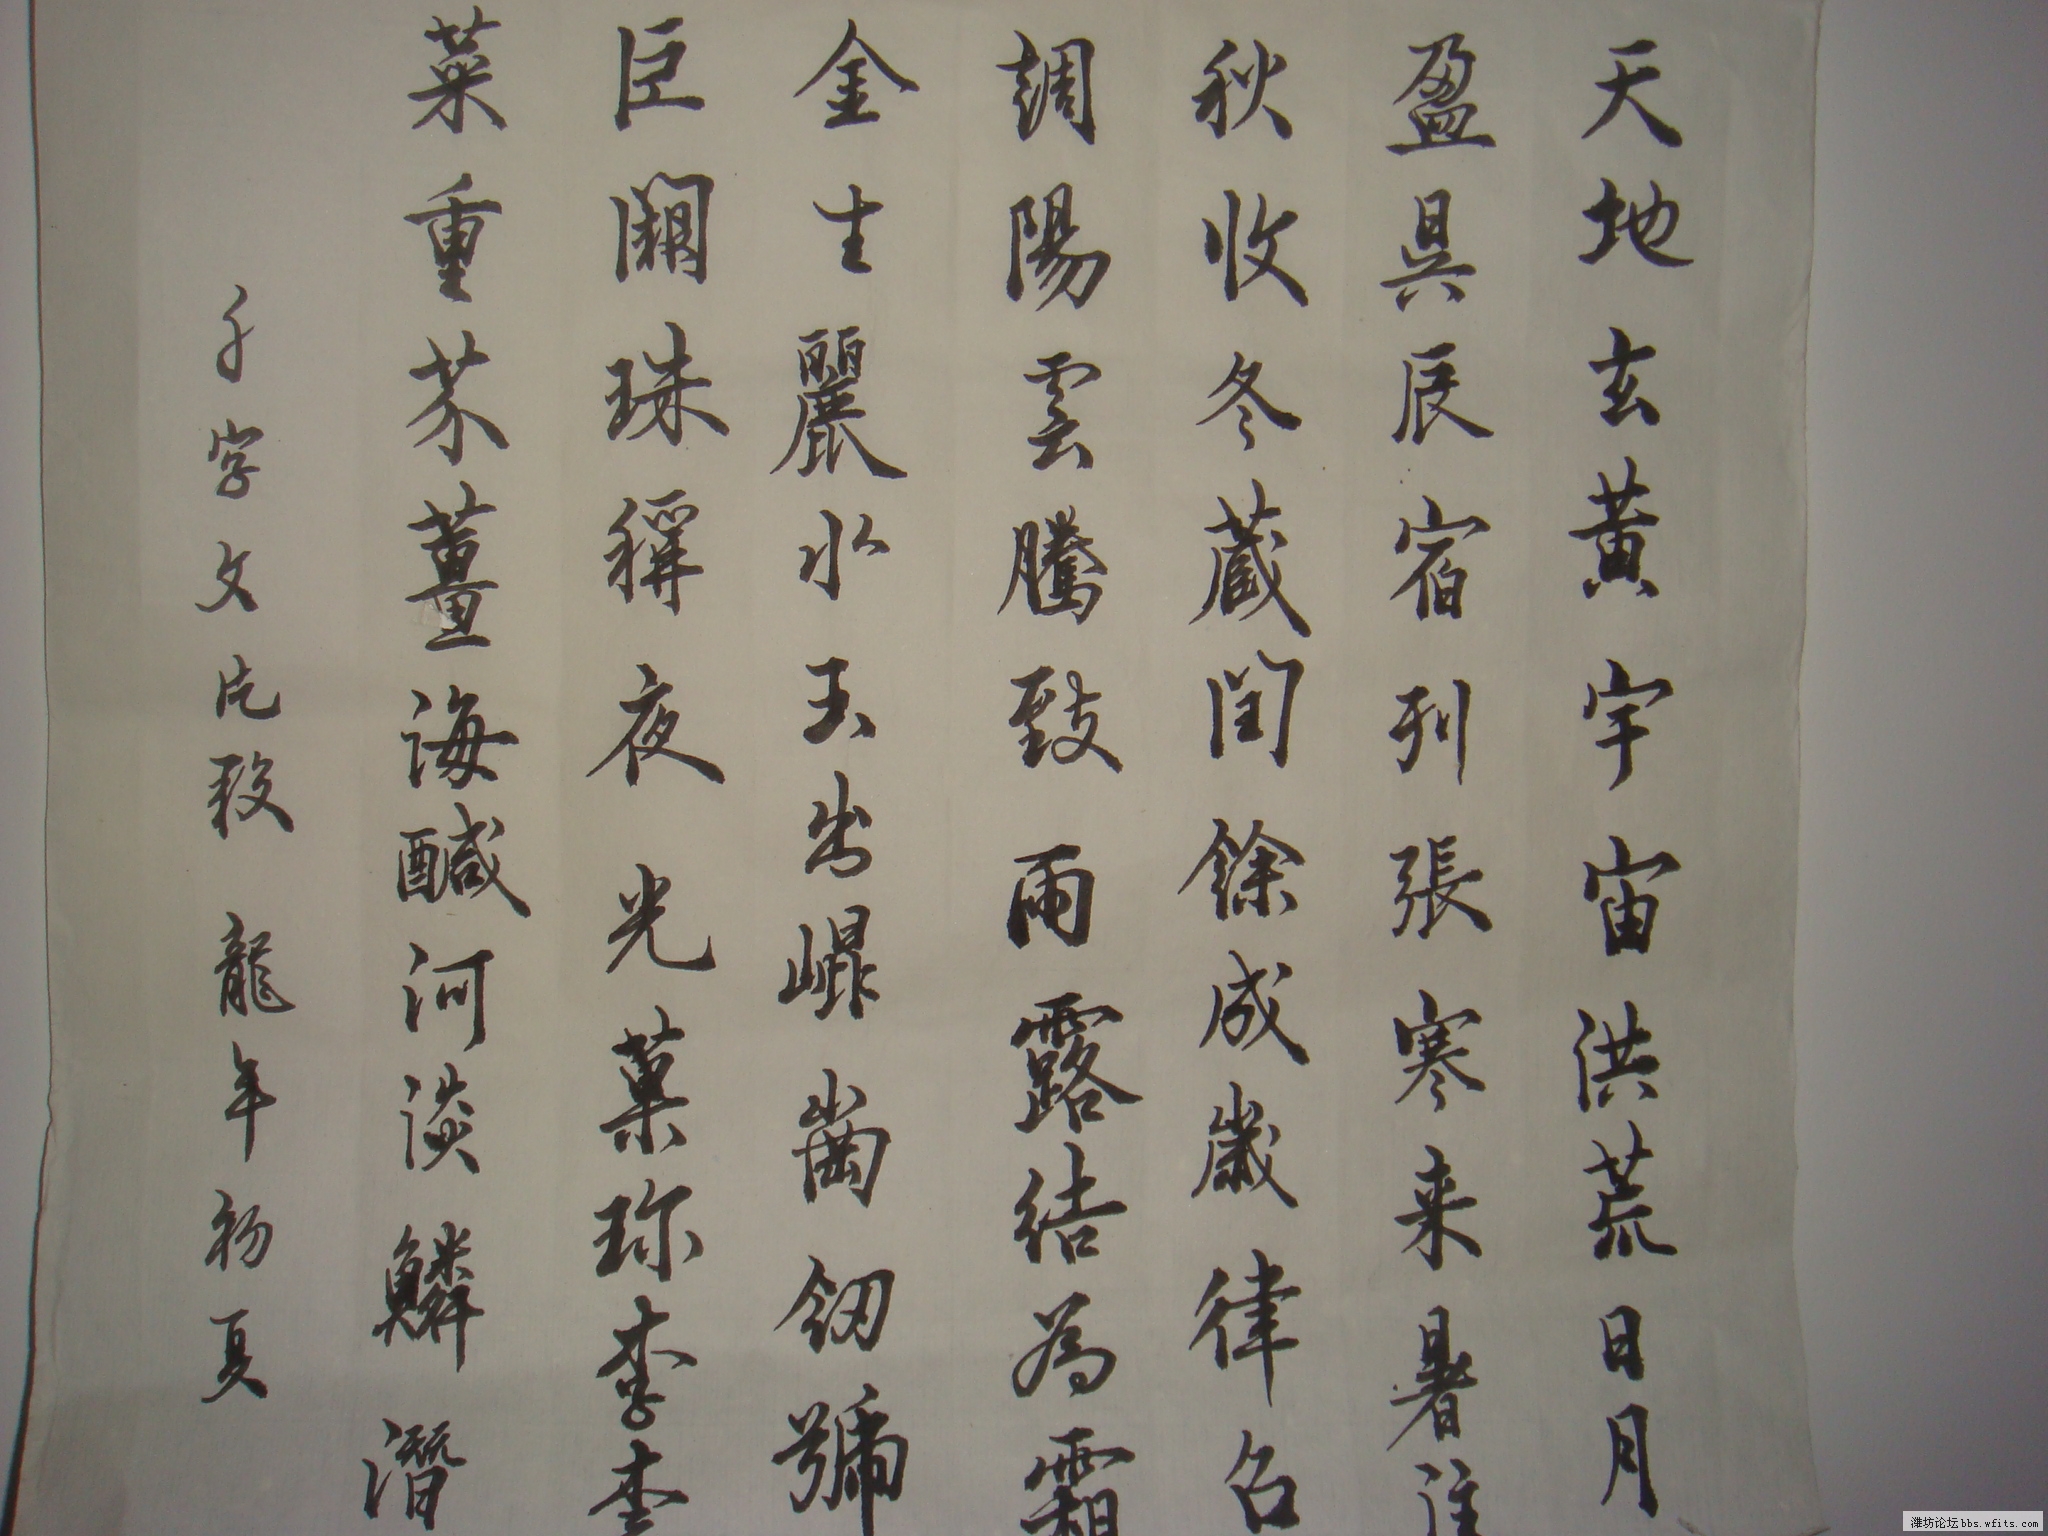 天地玄黃宇宙洪荒日月
盈昃辰宿列張寒来暑往
秋收冬藏閏餘成歲律召
調陽雲騰致雨露結為霜
金生麗水玉出崐崗釼號
巨闕珠稱夜光菓珍李柰
菜重芥薑海醎河淡鱗潛
千字文片段 龍年初夏
潍坊论坛bbs.wfits.com